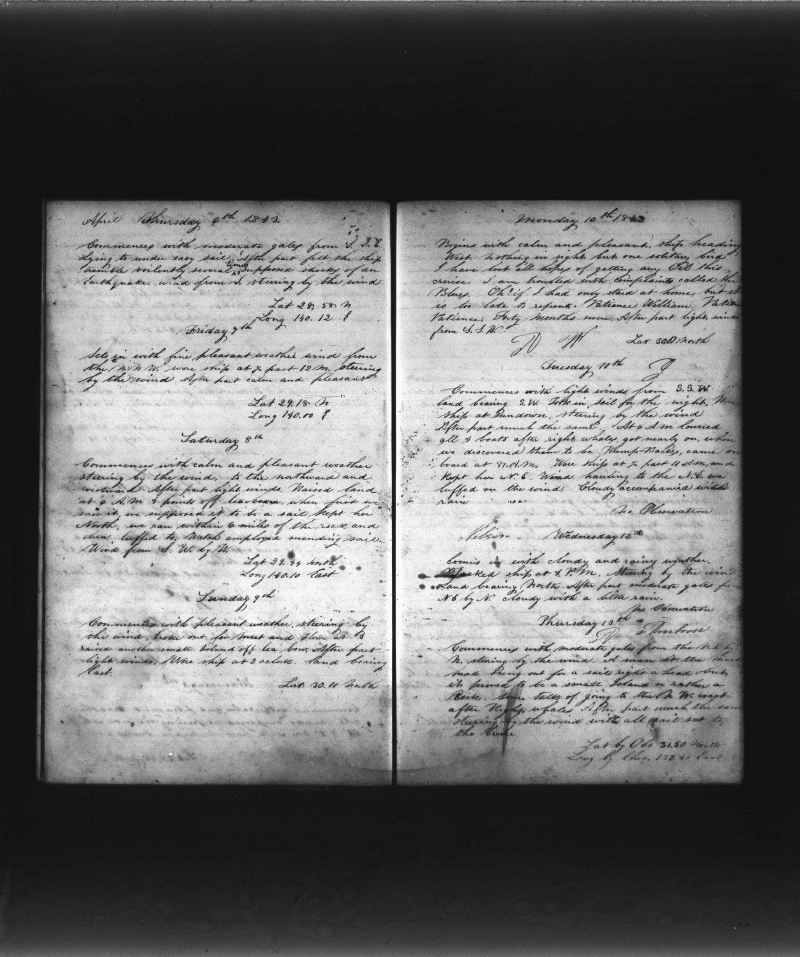 April Thursday 6th 1843.
Commences with moderate gales from S. S. E
Lying to under easy sail. After part felt the ship
tremble violently several times supposed shocks of an
Earthquake wind from S steering by the wind
Lat 28. 58. N
Long 140. 12 E
Friday 7th
Sets in with fine pleasant weather wind from
the N. N. W. wore ship at ½ past 12 M. steering
by the wind After part calm and pleasant
Lat 29.18 N
Long 140.00 E
Saturday 8th
Commences with calm and pleasant weather
steering by the wind, to the northward and
westward After part light winds. Raised land
at 9 A.M. 3 points off lea bow, when first we
saw it, we supposed it to be a sail kept her
North, we ran within 6 miles of the rock and
then luffed to, Watch employed mending sail
Wind from S. W. by W.
Lat 29.44 North
Long 140.10 East
Sunday 9th
Commences with pleasant weather, steering by
the wind, broke out for meat and at 3
raised another small Island off lea bow, After part
light winds, Wore ship at 2 oclock, land bearing
East.
Lat 30.11 North
Monday 10th 1843
Begins with calm and pleasant, ship heading
West. nothing in sight but one solitary bird
I have lost all hopes of getting any Oil this
cruise I am troubled with complaints called the
Blues. Oh! if I had only staid at home, but it
is too late to repent. Patience William, Patience
Patience, Forty months more, After part light winds
from S. S. W.
Lat North
Tuesday 11th
Commences with light winds from S. S. W
land bearing S. W. Took in sail for the night, Wore
ship at Sundown, steering by the wind
After part much the same, At 9 A M lowered
all 4 boats after right whales, got nearly on, when
we discovered them to be Hump-Backs, came on
board at Wore ship at ½ past 10 A m, and
kept her N. E. Wind hauling to the N. E. we
luffed on the wind. Cloudy accompanied with
rain
No Observation
Wednesday 12th
Comes in with cloudy and rainy weather,
ship at 4 P.M. steering by the wind
Land bearing North, After part moderate gales from
N E by N. cloudy with a little rain,
No Observation
Thursday 13th
Commences with moderate gales from the N. E by
N. steering by the wind. A man at the mast
head sung out for a sail right a head but
it proves to be a small Island or rather a
Rock. Some talk of going to the N. W. coast
after Right whales After part much the same
steering by the wind with all sail set to
the breeze
Lat by Obs 31.50 North
Long by Chro. East